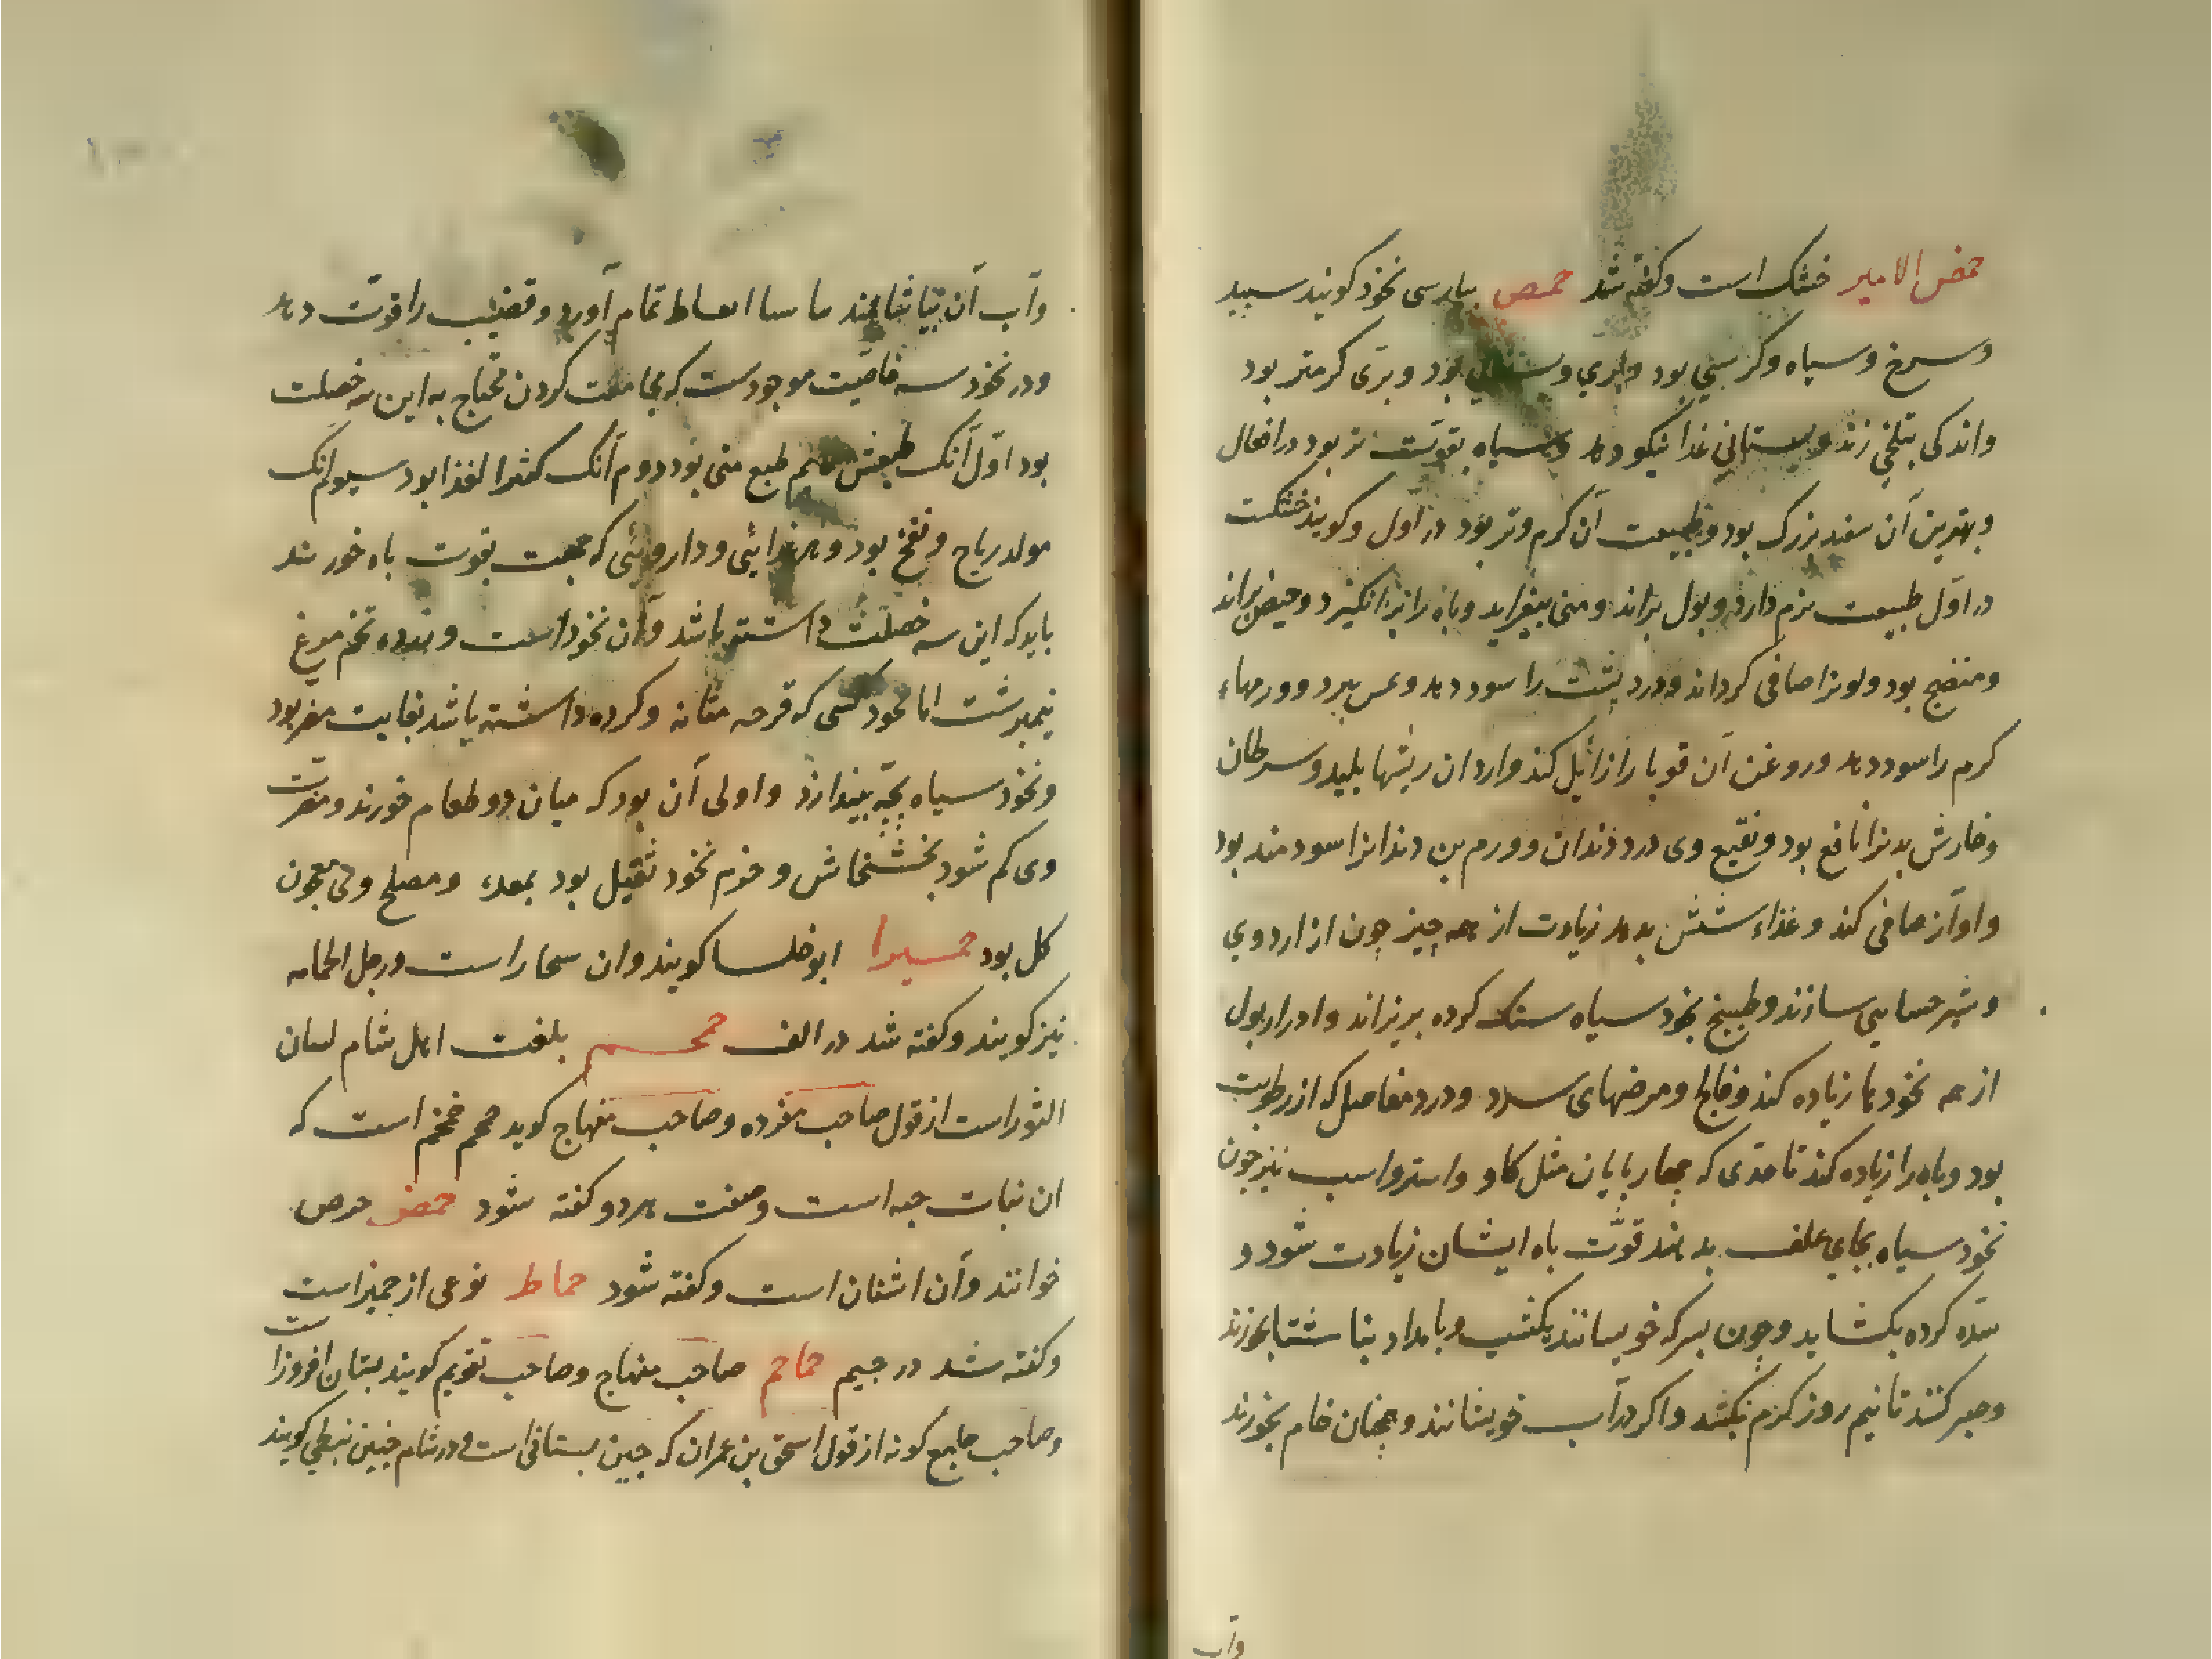 حمص الامیر خشک است وکفته شد حمص بپارسی نخود کویند سپید
وسرخ و سیاه وکرسنی بود وبری وبستانی بود و بری کرمتر بود
واندکی بتلخی زند و بستانی غذا نیکو دهد وسیاه بقوّت تر بود در افعال
وبهترین آن سفید بزرک بود وطبیعت آن کرم وتر بود در اول وکویند خشکست
در اوّل طبیعت نرم دارد وبول براند ومنی بیفزاید وباه را برانکیزد وحیض براند
ومنضج بود ولونرا صافی کرداند ودرد پشت را سود دهد و ببرد وورمهاء
کرم را سود دهد وروغن آن قوبا را زائل کند وارد ان ریشها پلید وسرطان
وخارش بدنرا نافع بود ونقیع وی درد دندان وورم بن دندانرا سودمند بود
واوآز صافی کند وغذاء شش بدهد زیادت از همه چیز چون از ارد وی
وشیر حسایی سازند وطبیخ نخود سیاه سنک کرده بریزاند وادرار بول
از همه نخودها زیاده کند وفالج ومرضهای سرد ودرد مفاصل که از رطوبت
بود وباه را زیاده کند تا حدّی که چهارپایان مثل کاو واسترواسب نیز چون
نخود سیاه بجای علف بدهند قوّت باه ایشان زیادت شود و
سدّه کرده بکشاید وچون بسرکه خویسانند یکشب وبامداد بناشتا بخورند
وصبر کنند تا نیم روز کرم بکشد واکر در آب خویسانند وهمچنان خام بخورند
وآب
وآب آن بیاشامند انعاط تمام آورد وقضیب را قوّت دهد
ودر نخود سه خاصیّت موجودست که مجامعت کردن محتاج به این سه خصلت
بود اوّل آنک طبعش ملایم طبع منی بود دوم آنک کثیر الغذا بود سیوم آنک
مولد ریاح ونفخ بود وهر غذائی ودارویئی که جهت قوت باه خورند
باید که این سه خصلت داشته باشد وآن نخود است وزرده تخم مرغ
نیمبرشت اما نخود کسی که قرحه مثانه وکرده داشته باشد بغایت مضر بود
ونخود سیاه بچّه بیندازد واولی آن بود که میان دو طعام خورند ومضرّت
وی کم شود بخشخاش و نخود ثقیل بود بمعده ومصلح وی معجون
کل بود حمیرا ابوخلسا کویند وان است ورجل الحمامه
نیز کویند وکفته شد در الف محمحم بلغت اهل شام لسان
الثور است از قول صاحب مفرده وصاحب منهاج کوید حمحم خمخم است که
ان نبات حبه است وصفت هر دو کفته شود حمض حرض
خوانند وآن اشنان است وکفته شود حماط نوعی از جمیز است
وکفته شد در جیم حماحم صاحب منهاج وصاحب تقویم کویند بستان افروز است
وصاحب جامع کوید از قول اسحق بن عمران که حبق بستانی است ودر شام حبق نبطی کویند